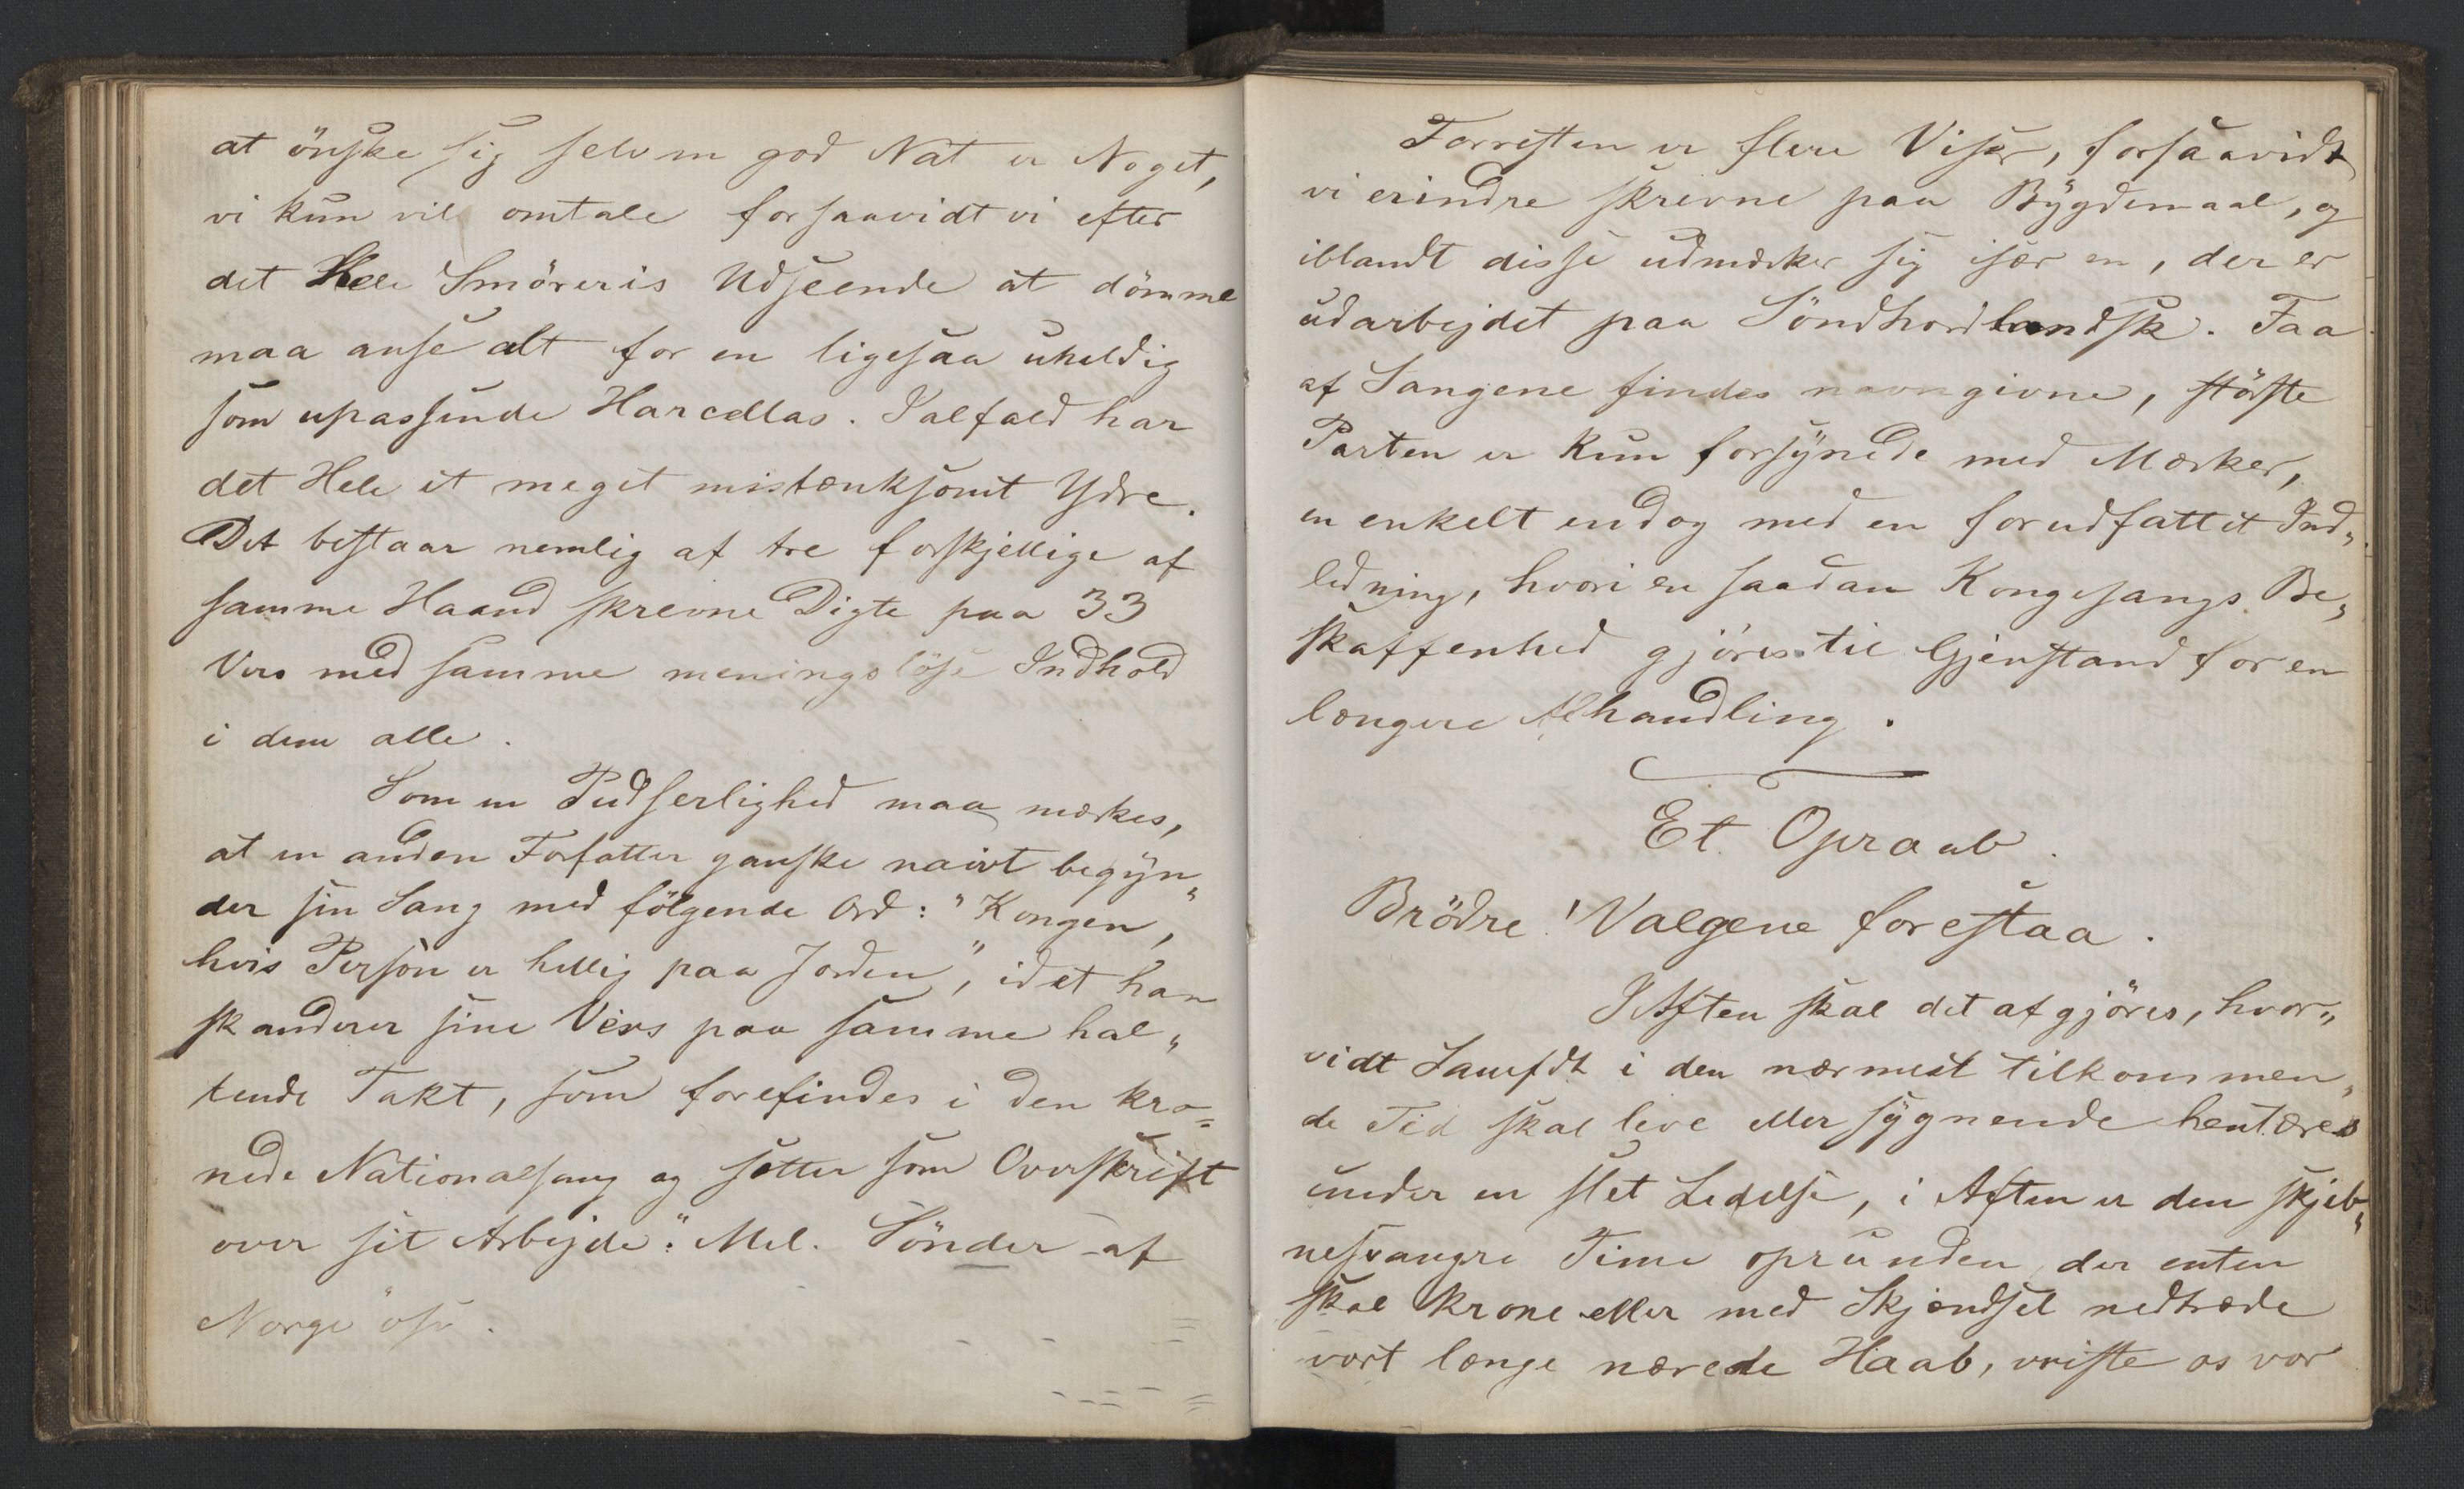 at önske sig selv en god Nat er Noget,
vi kun vil omtale forsaavidt vi efter
det Hele Smöreris Udseende at dömme
maa anse alt for en ligesaa uheldig
som upassende Harcellas. Ialfald har
det Hele et meget mistænksomt Ydre.
Det bestaar nemlig af tre forskjellige af
samme Haand skrevne Digte paa 33
Vers med samme meningslöse Indhold
i dem alle.
Som en Pudserlighed maa mærkes,
at en anden Forfatter ganske naivt begyn„
der sin Sang med fölgende Ord: "Kongen,
hvis Person er hellig paa Jorden", idet han
skanderer sine Vers paa samme hal„
tende Takt, som forefindes i den kro=
nede Nationalsang og sætter som Overskrift
over sit Arbejde: "Mel. Sönder af
Norge osv.
Forresten er flere Viser, forsaavidt
vi erindre skrevne paa Bygdemaal, og
iblandt disse udmærker sig især en, der er
udarbejdet paa Söndhordlandsk. Faa
af Sangene findes navngivne, störste
Parten er kun forsynede med Mærker,
en enkelt endog med en forudfattet Ind„
ledning, hvori en saadan Kongesangs Be„
skaffenhed gjöres til Gjenstand for en
længere Afhandling.
Et Opraab.
Brödre! Valgene forestaa.
I Aften skal det afgjöres, hvor„
vidt Samfdt i den nærmest tilkommen„
de Tid skal leve eller sygnende hentæres
under en slet Ledelse, i Aften er den skjeb„
nesvangre Time oprunden, der enten
skal krone eller med Skjændsel nedtræde
vort længe nærede Haab, vriste os vor